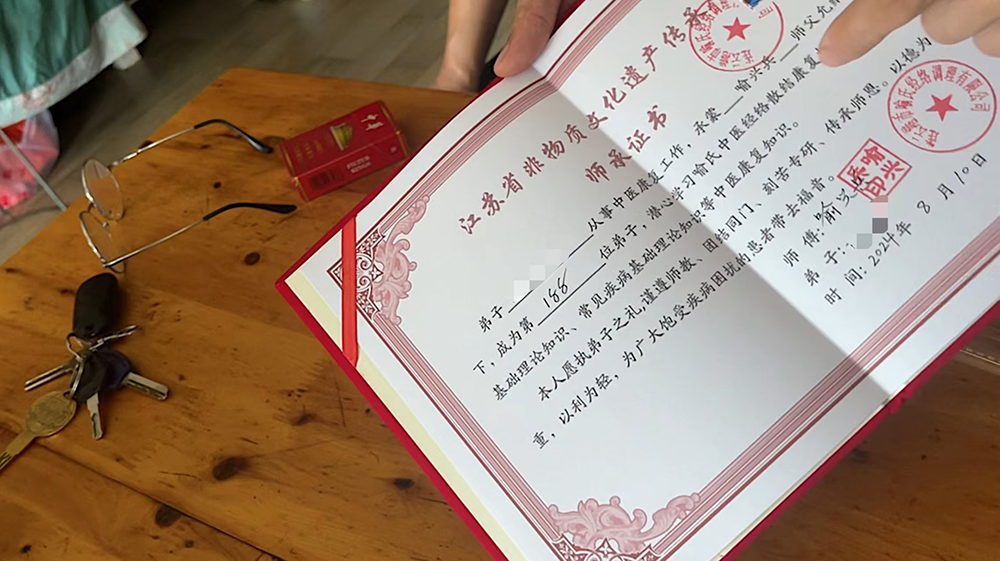 江苏省非物质文化遗产传承
师承证书
弟子 从事中医康复工作，承蒙 喻兴兵 师父允
下，成为第 188 位弟子，潜心学习喻氏中医经络散结康复
基础理论知识、常见疾病基础理论知识等中医康复知识。
本人愿执弟子之礼，谨遵师教、团结同门、刻苦专研、传承师恩。以德为
重，以利为轻，为广大饱受疾病困扰的患者带去福音。
师傅：喻兴
弟子：
时间：2024年 8月10日
喻氏经络调理有限公司